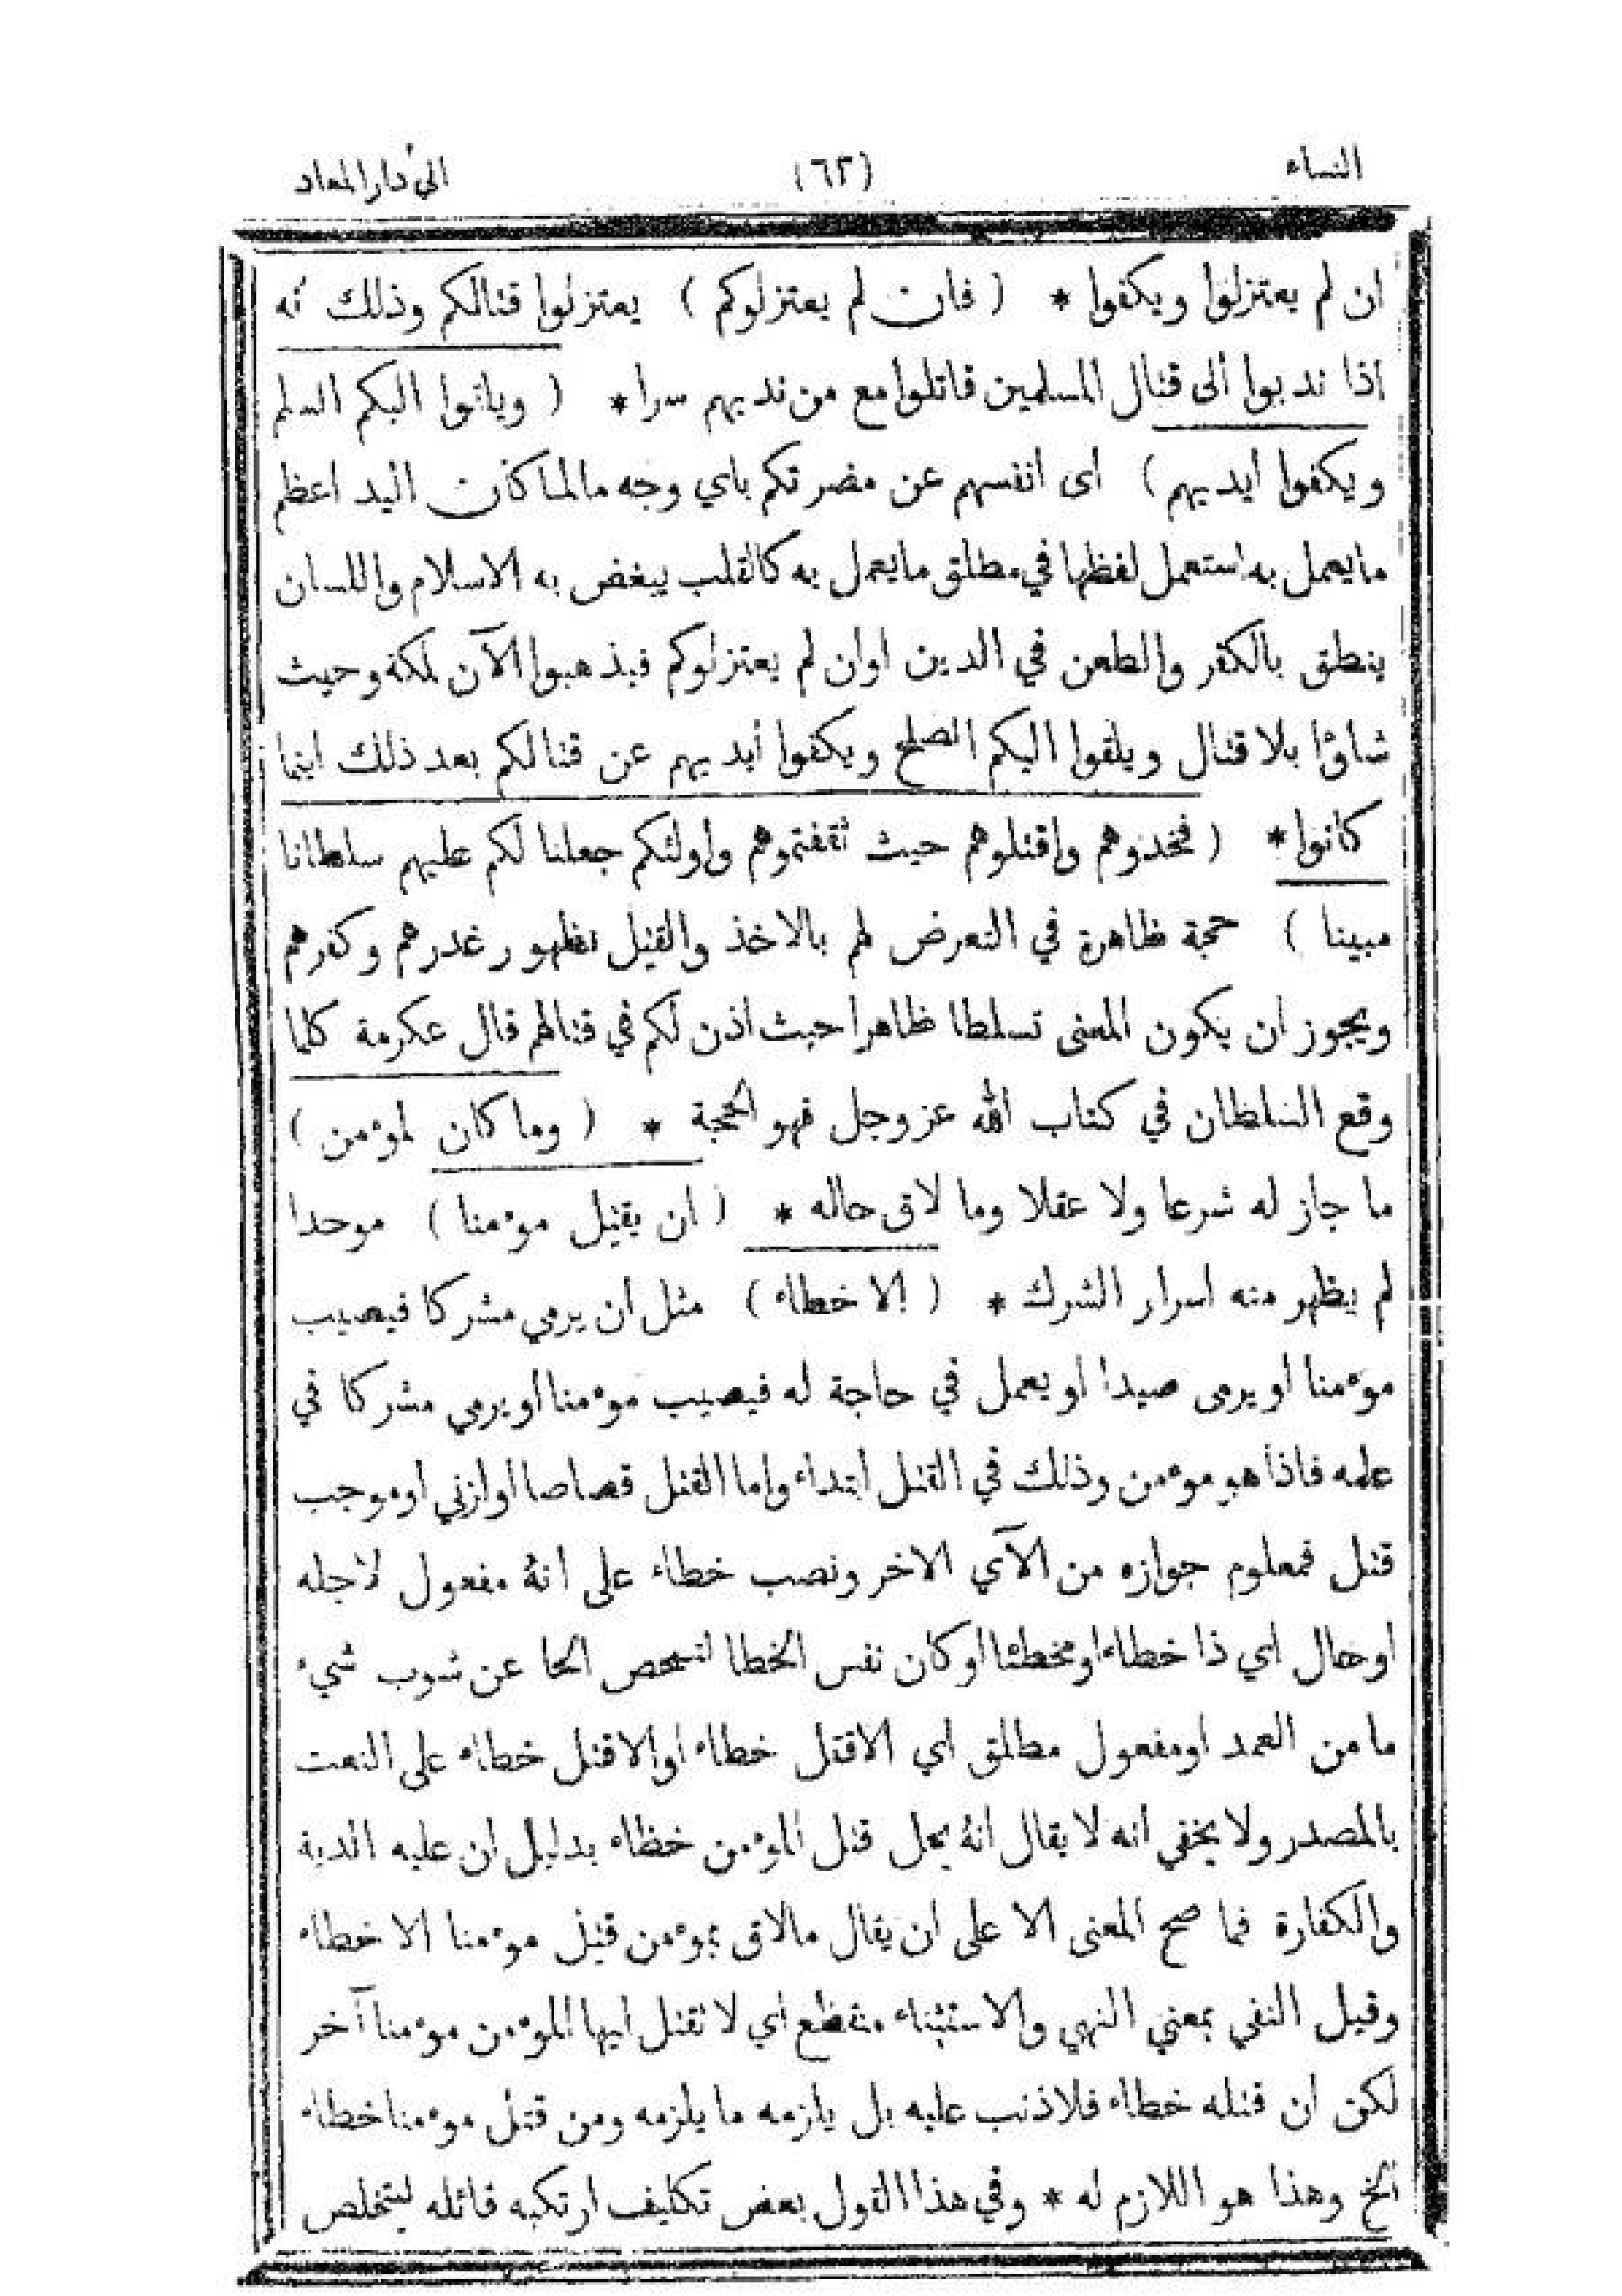 النساء
(٦٢)
الى دار المعاد
ان لم يعتزلوا ويكفوا * ( فان لم يعتزلوكم ) يعتزلوا قتالكم وذلك انه
اذا ندبوا الى قتال المسلمين قاتلوا مع من ندبهم سرا * ( ويلقوا اليكم السلم
ويكفوا ايديهم ) اى انفسهم عن مضرتكم باي وجه ما لما كان اليد اعظم
ما يعمل به استعمل لفظها في مطلق ما يعمل به كالقلب يبغض به الاسلام واللسان
ينطق بالكفر والطعن في الدين او ان لم يعتزلوكم فيذهبوا الآن لمكة وحيث
شاؤا بلا قتال ويلقوا اليكم الصلح ويكفوا أيديهم عن قتالكم بعد ذلك اينما
كانوا * ( فخذوهم واقتلوهم حيث ثقفتموهم وأولئكم جعلنا لكم عليهم سلطانا
مبينا ) حجة ظاهرة في التعرض لهم بالاخذ والقتل لظهور غدرهم وكفرهم
ويجوز ان يكون المعنى تسلطا ظاهرا حيث اذن لكم في قتالهم قال عكرمة كلما
وقع السلطان في كتاب الله عز وجل فهو الحجة * ( وما كان لمؤمن )
ما جاز له شرعا ولا عقلا وما لاق حاله * ( ان يقتل مؤمنا ) موحدا
لم يظهر منه اسرار الشرك * ( الا خطاء ) مثل أن يرمي مشركا فيصيب
مؤمنا او يرمى صيدا او يعمل في حاجة له فيصيب مؤمنا أو يرمي مشركا في
علمه فاذا هو مؤمن وذلك في القتل ابتداء واما القتل قصاصا أو لزنى او موجب
قتل فمعلوم جوازه من الآي الاخر ونصب خطاء على انه مفعول لاجله
او حال اي ذا خطاء او مخطئا او كان نفس الخطا لتمحص الحا عن شوب شيء
ما من العمد او مفعول مطلق اي الا قتل خطاء او الا قتل خطاء على النعت
بالمصدر ولا يخفي انه لا يقال انه يحل قتل المؤمن خطاء بدليل ان عليه الدية
والكفارة فما صح المعنى الا على ان يقال ما لاق بمؤمن قتل مؤمنا الا خطاء
وقيل النفي بمعنى النهي والاستثناء منقطع اي لا تقتل ايها المؤمن مؤمنا آخر
لكن ان قتله خطاء فلا ذنب عليه بل يلزمه ما يلزمه ومن قتل مؤمنا خطاء
الخ وهذا هو اللازم له * وفي هذا القول بعض تكليف ارتكبه قائله ليتخلص